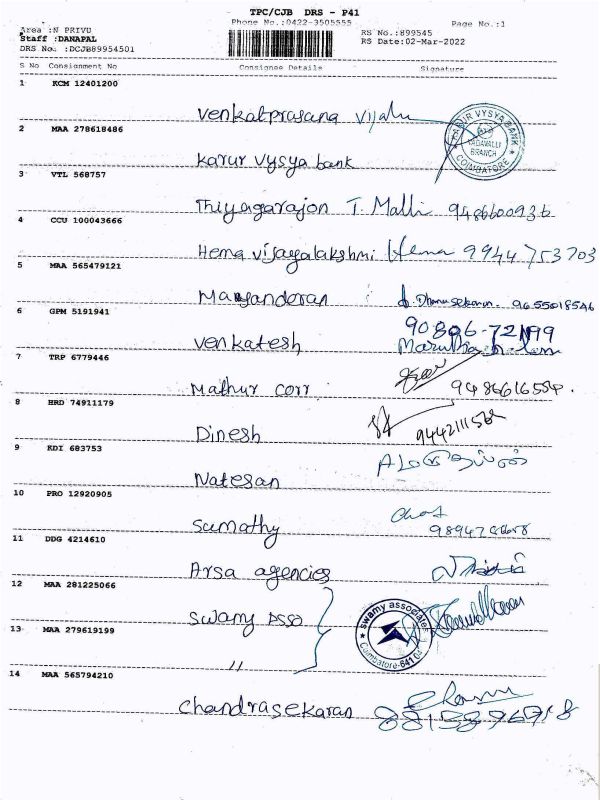 TPC/CJB DRS - P41
Phone No.:0422-3505555
Page No.:1
Area :N PRIVU
Staff :DANAPAL
RS No.:899545
DRS No. :DCJB89954501
RS Date:02-Mar-2022
S No Consignment No Consignee Details Signature
1 KCM 12401200
Venkatprasana Vijalu
KARUR VYSYA BANK
VADAVALLI
BRANCH
COIMBATORE
2 MAA 278618486
Karur vysya bank
3 VTL 568757
Thiyagarajon T. Malli 9486600936
4 CCU 100043666
Hema vijayalakshmi Hema 9944753703
5 MAA 565479121
Manandoran Dhanusekaran 9655018546
6 GPM 5191941
90806-72199
Venkatesh
7 TRP 6779446
Mathur corr 9486616554.
8 HRD 74911179
Dinesh 9442111562
9 KDI 683753
Natesan
10 PRO 12920905
Sumathy
11 DDG 4214610
Arsa agencies
12 MAA 281225066
Swamy Asso
swamy associates
Coimbatore-641
13 MAA 279619199
"
14 MAA 565794210
Chandrasekaran